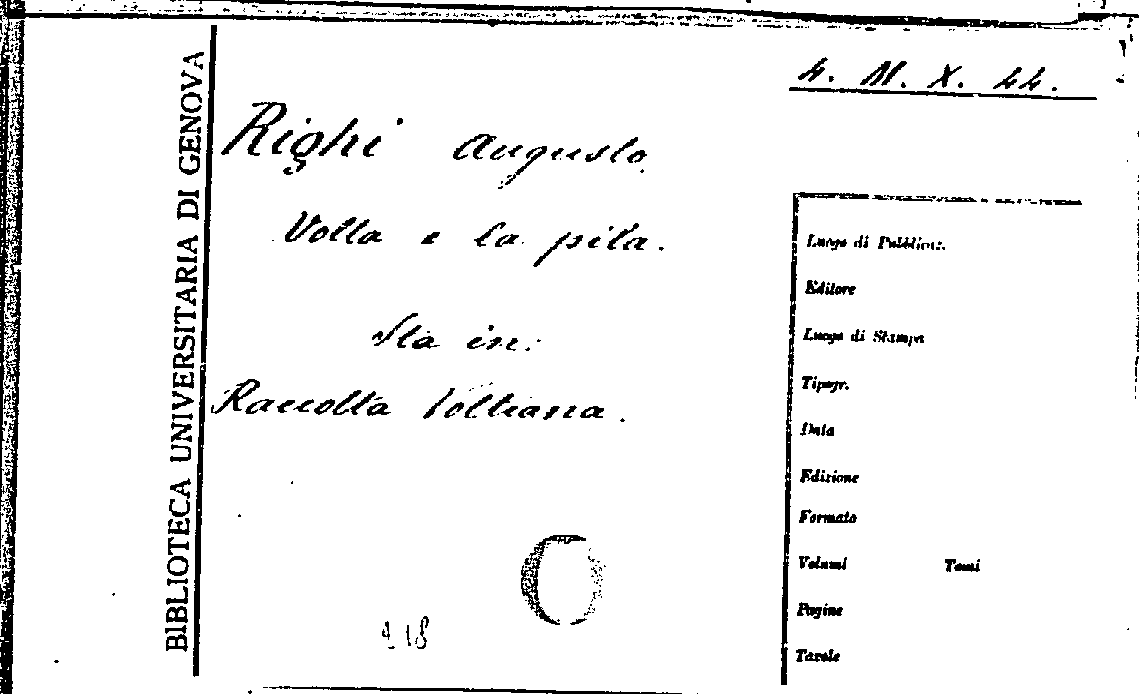 BIBLIOTECA UNIVERSITARIA DI GENOVA
4. M. X. 44.
Righi Augusto
Volta e la pila.
Sta in:
Raccolta Voltiana.
Luogo di Pubblicaz.
Editore
Luogo di Stampa
Tipogr.
Data
Edizione
Formato
Volumi Tomi
Pagine
Tavole